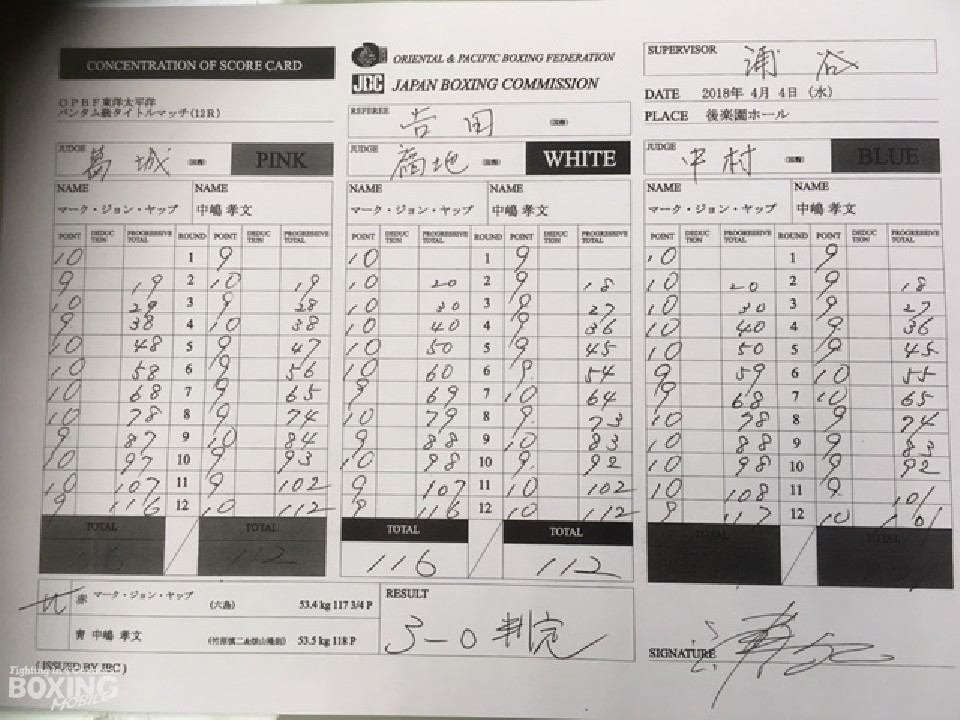 CONCENTRATION OF SCORE CARD
OPBF東洋太平洋
バンタム級タイトルマッチ(12R)
ORIENTAL & PACIFIC BOXING FEDERATION
JBC JAPAN BOXING COMMISSION
REFEREE 吉田 (国際)
SUPERVISOR 浦谷
DATE 2018年 4月 4日 (水)
PLACE 後楽園ホール
JUDGE 葛城 (国際) PINK
JUDGE (国際) WHITE
JUDGE 中村 (国際) BLUE
NAME NAME NAME NAME NAME NAME
マーク・ジョン・ヤップ 中嶋 孝文 マーク・ジョン・ヤップ 中嶋 孝文 マーク・ジョン・ヤップ 中嶋 孝文
POINT DEDUCTION PROGRESSIVE TOTAL ROUND POINT DEDUCTION PROGRESSIVE TOTAL POINT DEDUCTION PROGRESSIVE TOTAL ROUND POINT DEDUCTION PROGRESSIVE TOTAL POINT DEDUCTION PROGRESSIVE TOTAL ROUND POINT DEDUCTION PROGRESSIVE TOTAL
10 1 9 10 1 9 10 1 9
9 19 2 10 19 10 20 2 9 18 10 20 2 9 18
10 29 3 9 28 10 30 3 9 27 10 30 3 9 27
9 38 4 10 38 10 40 4 9 36 10 40 4 9 36
10 48 5 9 47 10 50 5 9 45 10 50 5 9 45
10 58 6 9 56 10 60 6 9 54 9 59 6 10 55
10 68 7 9 65 9 69 7 10 64 9 68 7 10 65
10 78 8 9 74 10 79 8 9 73 10 78 8 9 74
9 87 9 10 84 9 88 9 10 83 10 88 9 9 83
10 97 10 9 93 10 98 10 9 92 10 98 10 9 92
10 107 11 9 102 9 107 11 10 102 10 108 11 9 101
9 116 12 10 112 9 116 12 10 112 9 117 12 10
TOTAL TOTAL TOTAL TOTAL TOTAL TOTAL
116 112 116 112
赤 マーク・ジョン・ヤップ (六島) 53.4 kg 117 3/4 P
青 中嶋 孝文 53.5 kg 118 P
RESULT
3-0 判定
SIGNATURE
(ISSUED BY JBC)
BOXING
MOBILE